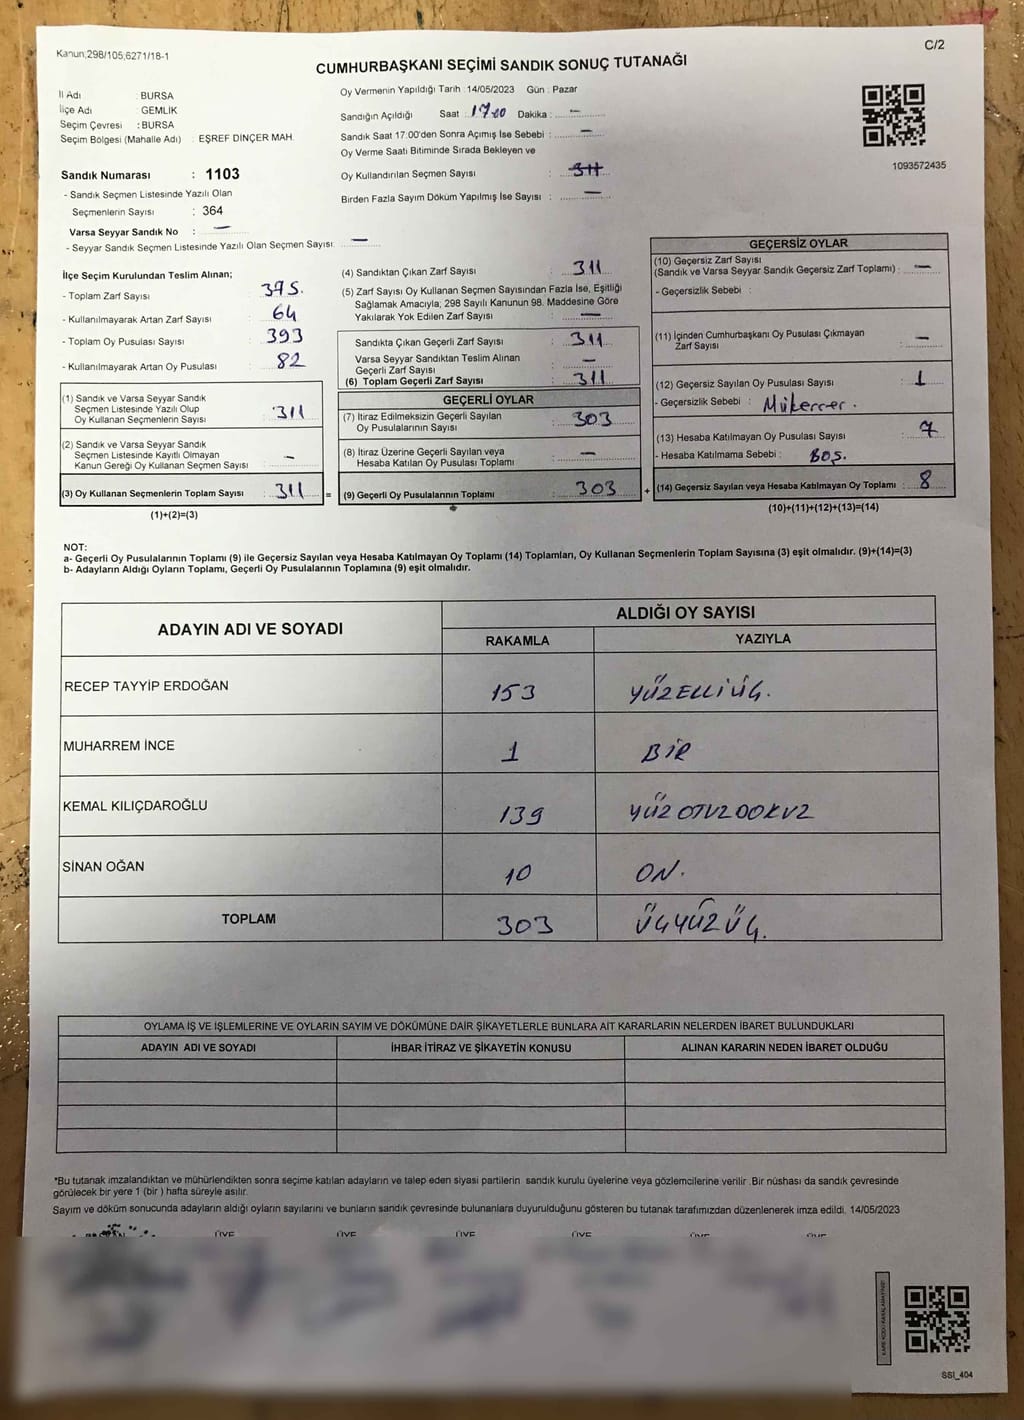 Kanun;298/105;6271/18-1
C/2
CUMHURBAŞKANI SEÇİMİ SANDIK SONUÇ TUTANAĞI
İl Adı : BURSA
İlçe Adı : GEMLİK
Seçim Çevresi : BURSA
Seçim Bölgesi (Mahalle Adı) : EŞREF DİNÇER MAH.
Oy Vermenin Yapıldığı Tarih : 14/05/2023 Gün : Pazar
Sandığın Açıldığı Saat : 17.00 Dakika : —
Sandık Saat 17:00'den Sonra Açımış İse Sebebi : —
Oy Verme Saati Bitiminde Sırada Bekleyen ve
Oy Kullandırılan Seçmen Sayısı : 311
Birden Fazla Sayım Döküm Yapılmış İse Sayısı : —
1093572435
Sandık Numarası : 1103
- Sandık Seçmen Listesinde Yazılı Olan
Seçmenlerin Sayısı : 364
Varsa Seyyar Sandık No : —
- Seyyar Sandık Seçmen Listesinde Yazılı Olan Seçmen Sayısı: —
İlçe Seçim Kurulundan Teslim Alınan;
- Toplam Zarf Sayısı : 375.
- Kullanılmayarak Artan Zarf Sayısı : 64
- Toplam Oy Pusulası Sayısı : 393
- Kullanılmayarak Artan Oy Pusulası : 82
(1) Sandık ve Varsa Seyyar Sandık
Seçmen Listesinde Yazılı Olup
Oy Kullanan Seçmenlerin Sayısı : 311
(2) Sandık ve Varsa Seyyar Sandık
Seçmen Listesinde Kayıtlı Olmayan
Kanun Gereği Oy Kullanan Seçmen Sayısı : —
(3) Oy Kullanan Seçmenlerin Toplam Sayısı : 311 =
(1)+(2)=(3)
(4) Sandıktan Çıkan Zarf Sayısı : 311
(5) Zarf Sayısı Oy Kullanan Seçmen Sayısından Fazla İse, Eşitliği
Sağlamak Amacıyla; 298 Sayılı Kanunun 98. Maddesine Göre
Yakılarak Yok Edilen Zarf Sayısı : —
Sandıkta Çıkan Geçerli Zarf Sayısı : 311
Varsa Seyyar Sandıktan Teslim Alınan
Geçerli Zarf Sayısı : —
(6) Toplam Geçerli Zarf Sayısı : 311
GEÇERLİ OYLAR
(7) İtiraz Edilmeksizin Geçerli Sayılan
Oy Pusulalarının Sayısı : 303
(8) İtiraz Üzerine Geçerli Sayılan veya
Hesaba Katılan Oy Pusulası Toplamı : —
(9) Geçerli Oy Pusulalarının Toplamı : 303 +
GEÇERSİZ OYLAR
(10) Geçersiz Zarf Sayısı
(Sandık ve Varsa Seyyar Sandık Geçersiz Zarf Toplamı) : —
- Geçersizlik Sebebi :
(11) İçinden Cumhurbaşkanı Oy Pusulası Çıkmayan
Zarf Sayısı : —
(12) Geçersiz Sayılan Oy Pusulası Sayısı : 1
- Geçersizlik Sebebi : Mükerrer.
(13) Hesaba Katılmayan Oy Pusulası Sayısı : 7
- Hesaba Katılmama Sebebi : BOŞ.
(14) Geçersiz Sayılan veya Hesaba Katılmayan Oy Toplamı : 8
(10)+(11)+(12)+(13)=(14)
NOT:
a- Geçerli Oy Pusulalarının Toplamı (9) ile Geçersiz Sayılan veya Hesaba Katılmayan Oy Toplamı (14) Toplamları, Oy Kullanan Seçmenlerin Toplam Sayısına (3) eşit olmalıdır. (9)+(14)=(3)
b- Adayların Aldığı Oyların Toplamı, Geçerli Oy Pusulalarının Toplamına (9) eşit olmalıdır.
ADAYIN ADI VE SOYADI
ALDIĞI OY SAYISI
RAKAMLA YAZIYLA
RECEP TAYYİP ERDOĞAN 153 YÜZELLİÜÇ.
MUHARREM İNCE 1 BİR
KEMAL KILIÇDAROĞLU 139 YÜZOTUZDOKUZ
SİNAN OĞAN 10 ON.
TOPLAM 303 ÜÇYÜZÜÇ.
OYLAMA İŞ VE İŞLEMLERİNE VE OYLARIN SAYIM VE DÖKÜMÜNE DAİR ŞİKAYETLERLE BUNLARA AİT KARARLARIN NELERDEN İBARET BULUNDUKLARI
ADAYIN ADI VE SOYADI İHBAR İTİRAZ VE ŞİKAYETİN KONUSU ALINAN KARARIN NEDEN İBARET OLDUĞU
*Bu tutanak imzalandıktan ve mühürlendikten sonra seçime katılan adayların ve talep eden siyasi partilerin sandık kurulu üyelerine veya gözlemcilerine verilir .Bir nüshası da sandık çevresinde
görülecek bir yere 1 (bir ) hafta süreyle asılır.
Sayım ve döküm sonucunda adayların aldığı oyların sayılarını ve bunların sandık çevresinde bulunanlara duyurulduğunu gösteren bu tutanak tarafımızdan düzenlenerek imza edildi. 14/05/2023
BAŞKAN ÜYE ÜYE ÜYE ÜYE ÜYE ÜYE
SSI_404